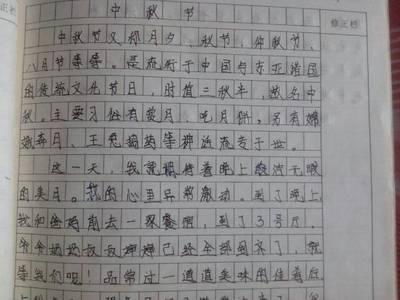 中秋节
修正栏
正栏
中秋节又称月夕、秋节、仲秋节、
八月节等等。是流行于中国与东亚诸国
的传统文化节日，时值三秋半，故名中
秋。主要习俗有赏月、吃月饼，另有嫦
娥奔月、玉兔捣药等神话流传于世。
这一天，我就期待着晚上皎洁无暇
的美月。我的心里异常激动。到了晚上
我和爸妈前去一家餐厅，到了3号厅。
爷爷奶奶叔叔婶婶已经全部到齐了，就
等我们呢！品尝过一道道美味的佳肴后